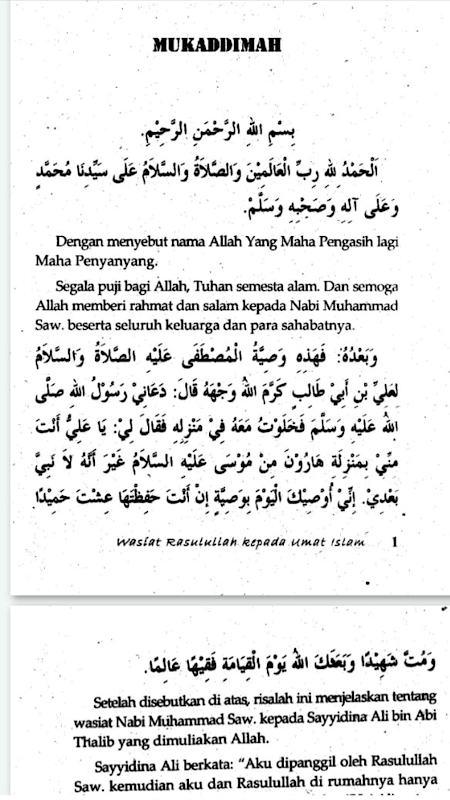 MUKADDIMAH
بِسْمِ اللهِ الرَّحْمَنِ الرَّحِيْمِ.
اَلْحَمْدُ للهِ رَبِّ الْعَالَمِيْنَ وَالصَّلاَةُ وَالسَّلاَمُ عَلَى سَيِّدِنَا مُحَمَّدٍ
وَعَلَى آلِهِ وَصَحْبِهِ وَسَلَّمَ.
Dengan menyebut nama Allah Yang Maha Pengasih lagi
Maha Penyanyang.
Segala puji bagi Allah, Tuhan semesta alam. Dan semoga
Allah memberi rahmat dan salam kepada Nabi Muhammad
Saw. beserta seluruh keluarga dan para sahabatnya.
وَبَعْدُهُ: فَهَذِهِ وَصِيَّةُ الْمُصْطَفَى عَلَيْهِ الصَّلاَةُ وَالسَّلاَمُ
لِعَلِيِّ بْنِ أَبِيْ طَالِبٍ كَرَّمَ اللهُ وَجْهَهُ قَالَ: دَعَانِيْ رَسُوْلُ اللهِ صَلَّى
اللهُ عَلَيْهِ وَسَلَّمَ فَخَلَوْتُ مَعَهُ فِيْ مَنْزِلِهِ فَقَالَ لِيْ: يَا عَلِيُّ أَنْتَ
مِنِّيْ بِمَنْزِلَةِ هَارُوْنَ مِنْ مُوْسَى عَلَيْهِ السَّلاَمُ غَيْرَ أَنَّهُ لاَ نَبِيَّ
بَعْدِيْ. إِنِّيْ أُوْصِيْكَ الْيَوْمَ بِوَصِيَّةٍ إِنْ أَنْتَ حَفِظْتَهَا عِشْتَ حَمِيْدًا.
Wasiat Rasulullah kepada Umat Islam 1
وَمُتَّ شَهِيْدًا وَبَعَثَكَ اللهُ يَوْمَ الْقِيَامَةِ فَقِيْهًا عَالِمًا.
Setelah disebutkan di atas, risalah ini menjelaskan tentang
wasiat Nabi Muhammad Saw. kepada Sayyidina Ali bin Abi
Thalib yang dimuliakan Allah.
Sayyidina Ali berkata: "Aku dipanggil oleh Rasulullah
Saw. kemudian aku dan Rasulullah di rumahnya hanya